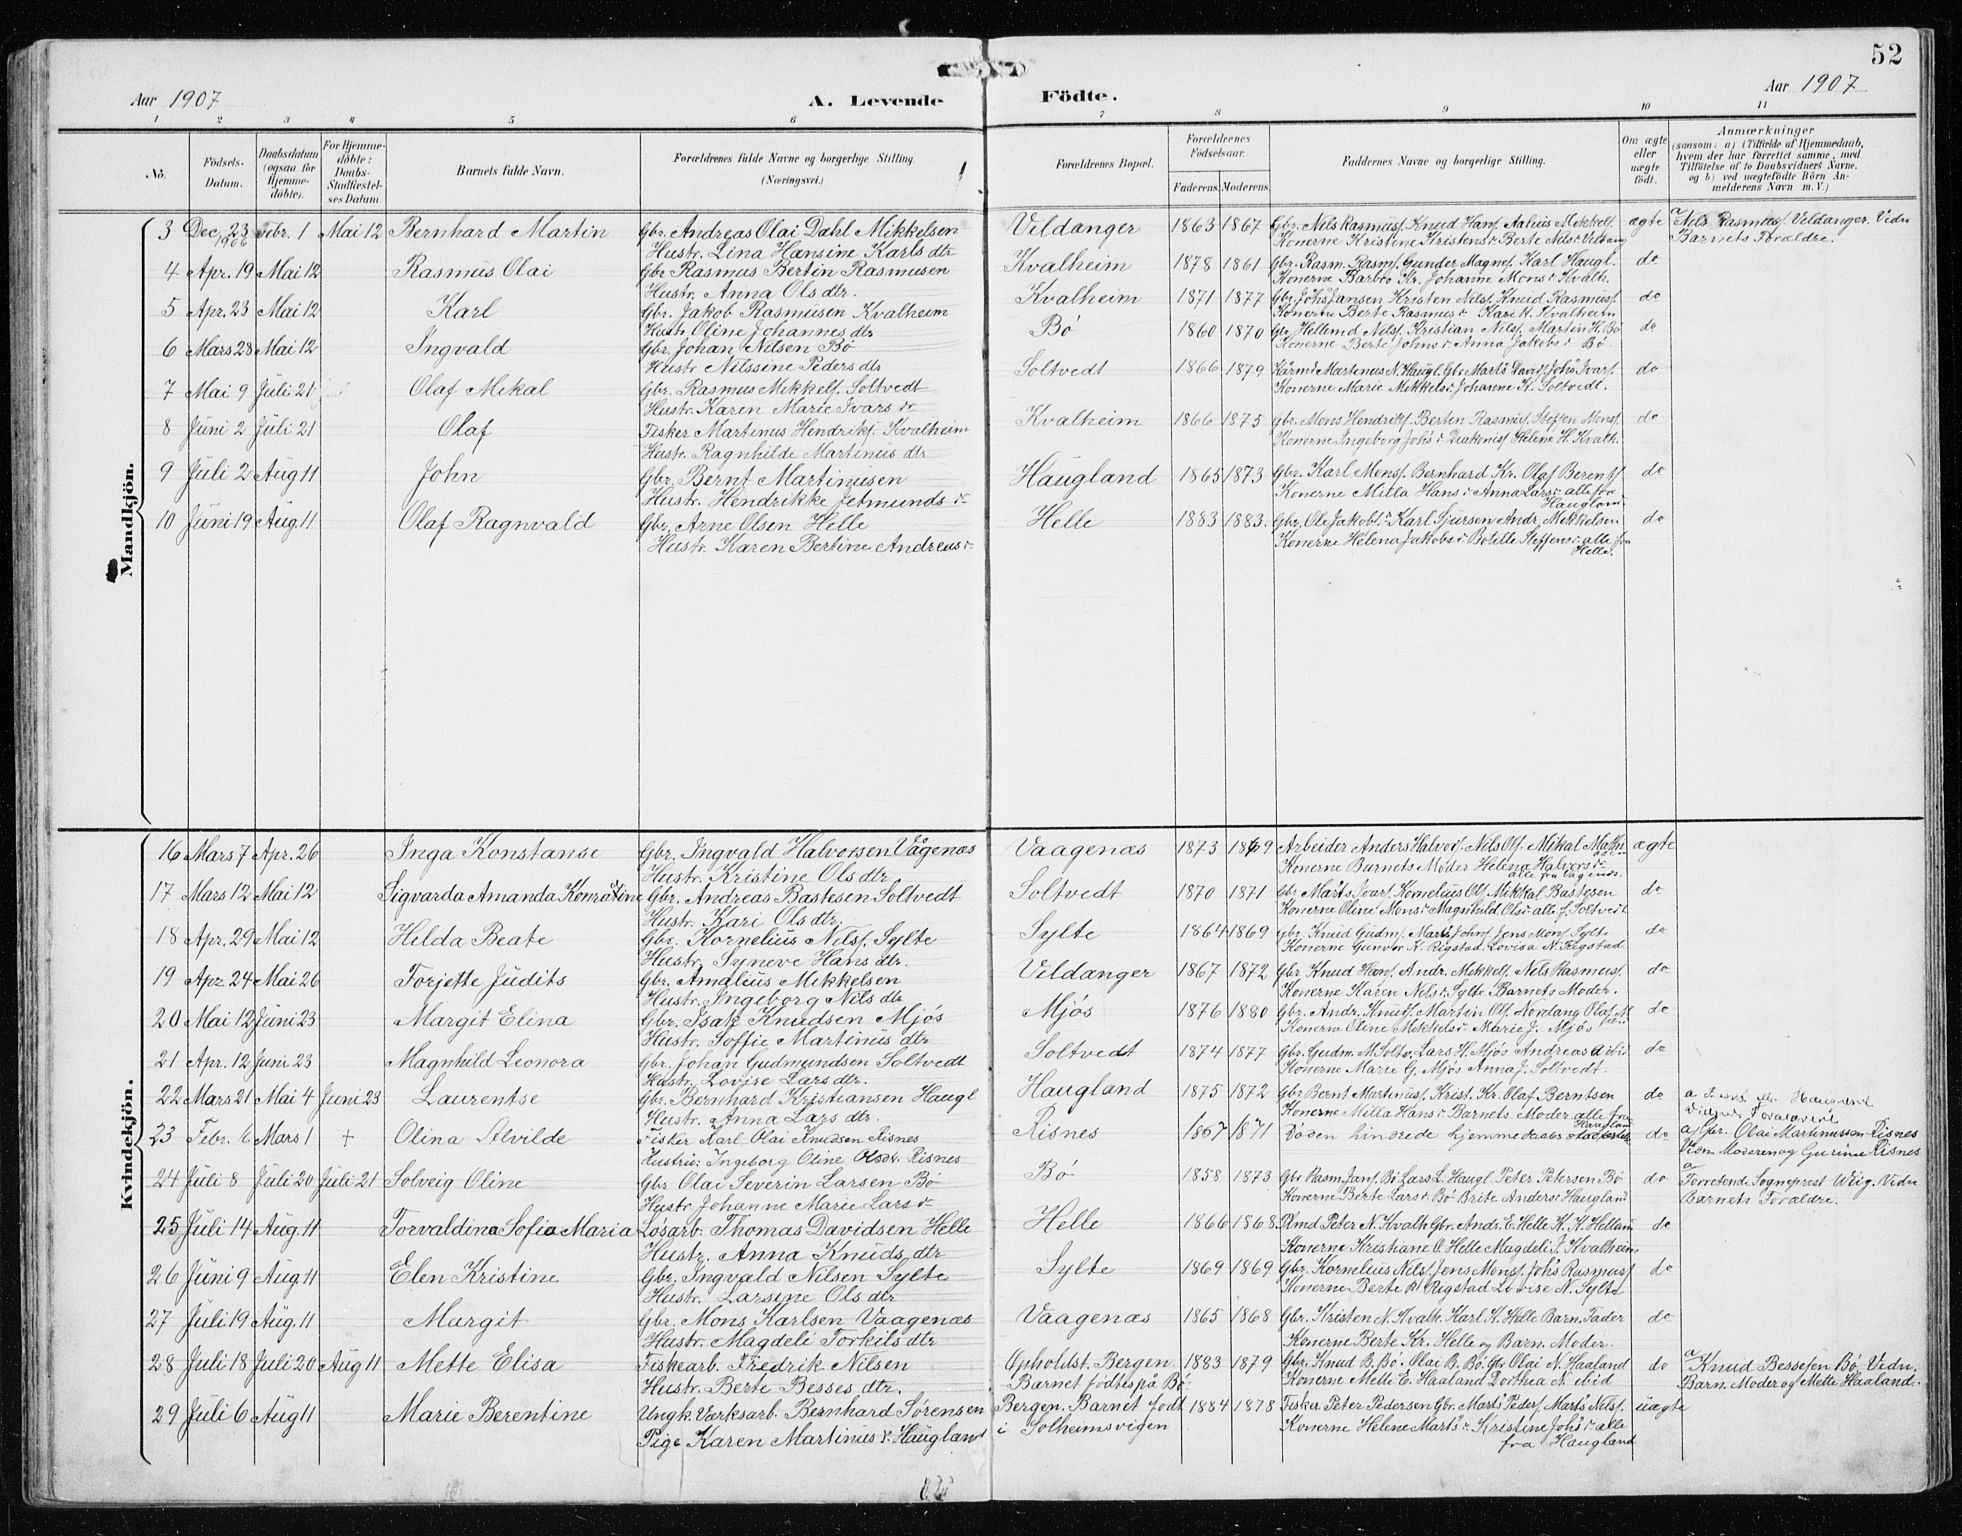 52
Aar 1907
A. Levende Födte.
Aar 1907
1 2 3 4 5 6 7 8 9 10 11
No. Födsels-Datum. Daabsdatum (ogsaa för Hjemme-döbte). For Hjemme-döbte: Daabs-Stadfæstel-ses Datum Barnets fulde Navn. Forældrenes fulde Navne og borgerlige Stilling. (Næringsvei.) Forældrenes Bopæl. Forældrenes Födselsaar. Faderens. Moderens. Faddernes Navne og borgerlige Stilling. Om ægte eller uægte födt. Anmærkninger (saasom: a) i Tilfælde af Hjemmedaab, hvem der har forrettet samme, med Tilföielse af to Daabsvidners Navne. og b) ved uægtefödte Börn An-melderens Navn m. V.)
Mandkjön.
3 Dec. 23 1906 Febr. 1 Mai 12 Bernhard Martin Gbr. Andreas Olai Dahl Mikkelsen Veldanger 1863 1867 Gbr. Nils Rasmus Knud Hans Aalius Mikkels. ægte a Nils Rasmus. Veldanger. Vidn
Hustr. Lina Hansine Karls dtr Konerne Kristine Kristens Berte Nils Veldang Barnets Foraldre.
4 Apr. 19 Mai 12 Rasmus Olai Gbr Rasmus Bertin Rasmusen Kvalheim 1878 1861 Gbr. Rasm. Rasm. Gunder Magns. Karl Haugl. do
Hustr. Anna Ols dtr. Konerne Barbro Kr. Johanne Mons Kvalh.
5 Apr. 23 Mai 12 Karl Gbr. Jakob Rasmusen Kvalheim Kvalheim 1871 1877 Gbr Johs Jansen Kristen Nils. Knud Rasmuss. do
Hustr Oline Johannes dtr Konerne Berte Rasmus Kari K. Kvalheim
6 Mars 28 Mai 12 Ingvald Gbr. Johan Nilsen Bö Bö 1860 1870 Gbr Hellem Nils. Kristian Nils. Martin K. Bö do
Hustr Nilssine Peders dtr Konerne Berte Johns Anna Jakobs Bö.
7 Mai 9 Juli 21 Olaf Mikal Gbr. Rasmus Mikkels. Soltvedt Soltvedt 1866 1879 Martinus N. Haugl. Gbr Marts David Johs Ivars. do
Hustr. Karen Marie Ivars dr Konerne Marie Mikkels Johanne K. Soltvedt.
8 Juni 2 Juli 21 Olaf Fisker Martinus Hendriks. Kvalheim Kvalheim 1866 1875 Gbr. Mons Hendriks. Berten Rasmus. Steffen Mons. do
Hustr. Ragnhilde Martinus dtr Konerne Ingeborg Johs Helene H. Kvalh.
9 Juli 2 Aug 11 John Gbr. Bernt Martinusen Haugland 1865 1873 Gbr. Karl Mons. Bernhard Kr. Olaf Berents. do
Hustr. Hendrikke Jetmunds dr Konerne Milla Hans Anna Lars alle fra Haugland
10 Juni 19 Aug 11 Olaf Ragnvald Gbr. Arne Olsen Helle Helle 1883 1883. Gbr. Ole Jakobs. Karl Sjursen Andr. Mikkelsen do
Hustr. Karen Bertine Andreas dr Konerne Helena Jakobs Botille Steffens alle fra Helle.
Kvindekjön.
16 Mars 7 Apr. 26 Inga Konstanse Gbr. Ingvald Halvorsen Vågenæs Vaagenæs 1873 1869 Arbeider Anders Halvor Nils Ols. Mikal ægte
Hustr. Kristine Ols dtr Konerne Barnets Moder Helena Halvors alle fra Vågenæs.
17 Mars 12 Mai 12 Sigvarda Amanda Konratine Gbr. Andreas Bastesen Soltvedt Soltvedt 1870 1871 Gbr Marts Ivars. Kornelius Ols. Mikkal Bastesen do
Hustr. Kari Ols dtr. Konerne Oline Mons Magnhild Ols alle f. Soltvedt
18 Apr. 29 Mai 12 Hilda Beate Gbr. Kornelius Nils. Sylte Sylte 1864 1869 Gbr. Knud Gudm. Marts Johs. Jens Mons. Sylte do
Hustr. Syneve Hans dtr. Konerne Gunvor K. Rigstad Lovisa N. Rigstad
19 Apr 24 Mai 26 Torjette Judits Gbr. Amalius Mikkelsen Veldanger 1867 1872 Gbr Knud Hans. Andr. Mikkels. Nils Rasmus. do
Hustr. Ingeborg Nils dtr Konerne Karen Nils Sylte Barnets Moder.
20 Mai 12 Juni 23 Margit Elina Gbr. Isak Knudsen Mjös Mjös 1876 1880 Gbr. Andr. Knuds. Martin Ols. Nordang Olaf M. do
Hustr. Soffie Martinus dtr Konerne Oline Mikkels Marie J. Mjös
21 Apr. 12 Juni 23 Magnhild Leonora Gbr. Johan Gudmundsen Soltvedt Soltvedt 1874 1877 Gbr. Gudm. M. Soltv. Lars H. Mjös Andreas ibid do
Hustr. Lovise Lars dtr. Konerne Marie G. Mjös Anna J. Soltvedt.
22 Mars 21 Mai 4 Juni 23 Laurentse Gbr. Bernhard Kristiansen Haugl Haugland 1875 1872 Gbr Bernt Martinus. Krist. Kr. Olaf Berntsen do a Haugland
Hustr. Anna Lars dtr. Konerne Milla Hans Barnets Moder alle fra Haugland Foraldre
23 Febr. 6 Mars 1 + Olina Alvilde Fisker Karl Olai Knudsen Risnes Risnes 1867 1871 Döden hindrede hjemmedaabs stadfæstelse do a) Gbr. Olai Martinussen Risnes
Hustru: Ingeborg Oline Olsdt. Risnes Vidn. Moderen og Gurine Risnes
24 Juli 8 Juli 20 Juli 21 Solveig Oline Gbr Olai Severin Larsen Bö Bö 1858 1873 Gbr Rasm Jans. Bö Lars L. Haugl Peter Petersen Bö do a Forretende Sogneprest Wiig. Vidn
Hustr Johanne Marie Lars dr Konerne Berte Lars Bö Brite Anders Haugland Barnets Foraldre.
25 Juli 14 Aug. 11 Torvaldina Sofie Maria Lösarb. Thomas Davidsen Helle Helle 1866 1868 Peter N. Kvalh Gbr. Andr. E. Helle K. K. Hellem do
Hustr. Anna Knuds dtr Konerne Kristiane O. Helle Magdeli J. Kvalheim
26 Juni 9 Aug 11 Elen Kristine Gbr. Ingvald Nilsen Sylte Sylte 1869 1869 Gbr. Kornelius Nils. Jens Mons. Johs Rasmus. do
Hustr. Larsine Ols dtr Konerne Berte Rigstad Lovise N. Sylte
27 Juli 19 Aug. 11 Margit Gbr. Mons Karlsen Vaagenæs Vaagenæs 1865 1868 Gbr. Kristen N. Kvalh. Karl K. Helle Barn. Fader do
Hustr. Magdeli Torkils dtr Konerne Berte Kr. Helle og Barn. Moder.
28 Juli 18 Juli 20 Aug 11 Mette Elisa Fiskearb. Fredrik Nilsen Opholdst. Bergen. 1883 1879 Gbr. Knud B. Bö. Olai B. Bö. Gbr Olai N. Haaland do a Knud Bessesen Bö Vidn.
Hustr. Berte Besses dtr. Barnet födtes på Bö Konerne Melle E. Haaland Dorthea N. ibid Barn. Moder og Mette Haaland.
29 Juli 6 Aug 11 Marie Berentine Ungk. Værksarb. Bernhard Sörensen Bergen. Barnet födt 1884 1878 Fisker Peter Pedersen Gbr. Marts Peders. Marts Nils. uægte
Pige Karen Martinus dr. Haugland i Solheimsvigen Konerne Helene Marts Kristine Johs alle fra Haugland